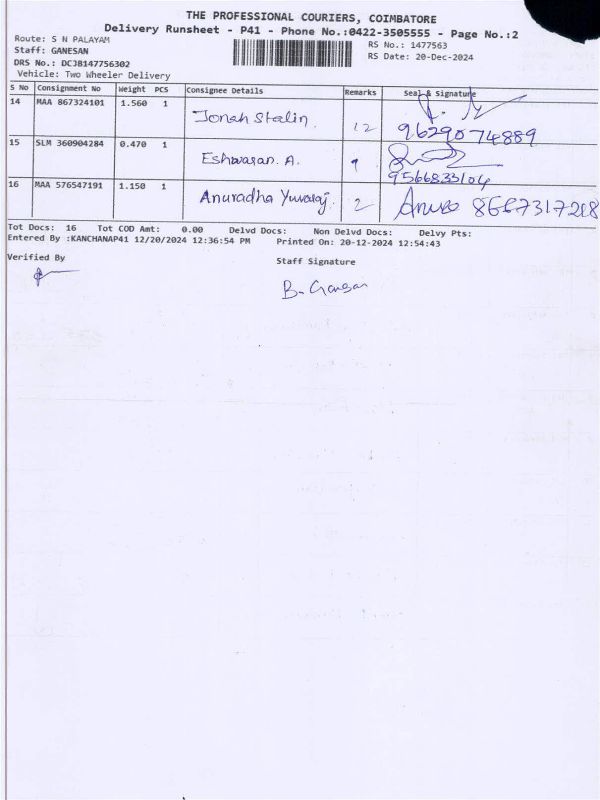 THE PROFESSIONAL COURIERS, COIMBATORE
Delivery Runsheet - P41 - Phone No.:0422-3505555 - Page No.:2
Route: S N PALAYAM RS No.: 1477563
Staff: GANESAN RS Date: 20-Dec-2024
DRS No.: DCJB147756302
Vehicle: Two Wheeler Delivery
S No Consignment No Weight PCS Consignee Details Remarks Seal & Signature
14 MAA 867324101 1.560 1 Jonah Stalin 12
9629074889
15 SLM 360904284 0.470 1 Eshwaran. A. 9
9566833104
16 MAA 576547191 1.150 1 Anuradha Yuvaraj 2 Anuso 8667317208
Tot Docs: 16 Tot COD Amt: 0.00 Delvd Docs: Non Delvd Docs: Delvy Pts:
Entered By :KANCHANAP41 12/20/2024 12:36:54 PM Printed On: 20-12-2024 12:54:43
Verified By Staff Signature
B. Ganesan